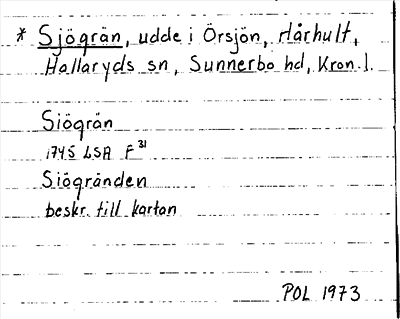 * Sjögrän, udde i Örsjön, Hårhult,
Hallaryds sn, Sunnerbo hd, Kron. l.
Siögrän
1745 LSA F 31
Siögränden
beskr. till kartan
POL 1973